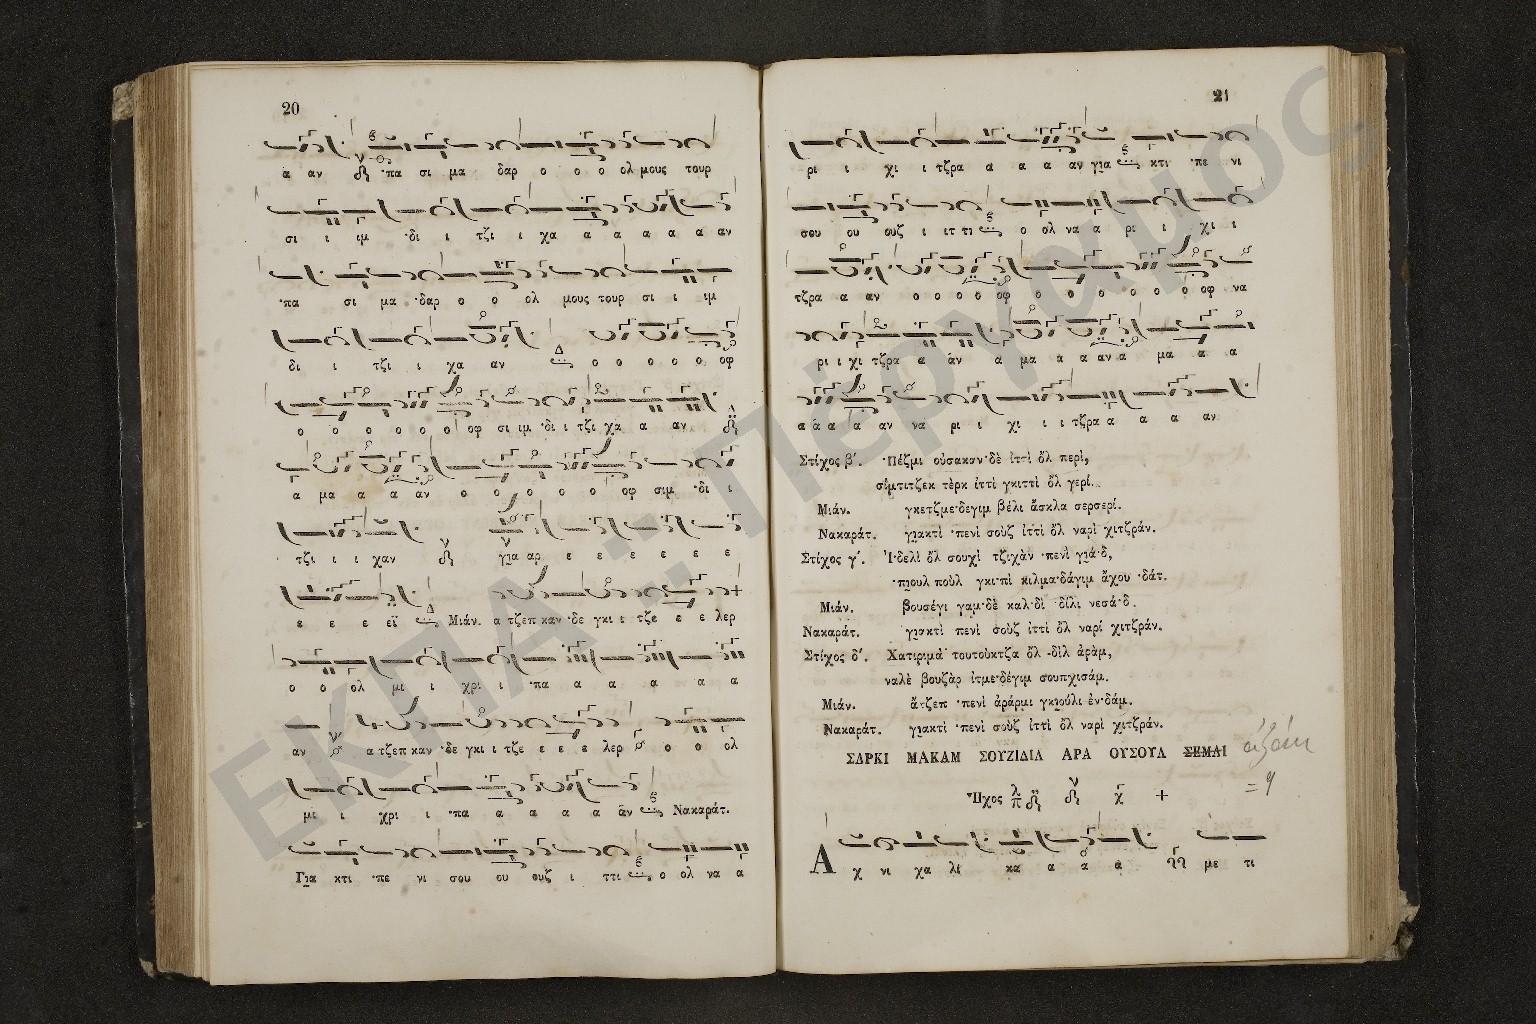 20
ἀ αν ·πα σι μα δαρ ο ο ο ολ μους τουρ
σι ι ιμ ·δι ι τζι ι χα α α α α α αν
·πα σι μα ·δαρ ο ο ολ μους τουρ σι ι ιμ
δι ι τζι ι χα αν ο ο ο ο ο οφ
ο ο ο ο ο ο οφ σι ιμ ·δι ι τζι χα α αν
ἀ μα α α αν ο ο ο ο ο οφ σιμ ·δι ι
τζι ι ι χαν για αρ ε ε ε ε ε ε
ε ε ε εϊ Μιάν. α τζεπ καν ·δε γκι ι τζε ε ε λερ
ο ο ολ μι ι χρι ι ·πα α α α α α
αν α τζεπ καν ·δε γκι ι τζε ε ε ε λερ ο ο ολ
μι ι χρι ι ·πα α α α α ἂν Νακαράτ.
Για κτι ·πε νι σου ου ουζ ι ττι ο ολ να α
21
ρι ι χι ι τζρα α α α αν για κτι ·πε νι
σου ου ουζ ι ιτ τι ο ολ να α ρι ι χι ι
τζρα α αν ο ο ο ο οφ ο ο ο ο ο ο ο οφ να
ρι ι χι τζρα α ἀν α μα α α αν α μα α α
α ἀ α α αν να ρι ι χι ι ι τζρα α α α αν
Στίχος β΄. ·Πέζμι οὐσακαν·δὲ ἰττὶ ὂλ περὶ,
σίμτιτζεκ τὲρκ ἰττὶ γκιττὶ ὂλ γερί.
Μιάν. γκετζμε·δεγιμ βέλι ἄσκλα σερσερί.
Νακαράτ. γιακτὶ ·πενὶ σοὺζ ἰττὶ ὂλ ναρὶ χιτζράν.
Στίχος γ΄. Ἰ·δελὶ ὂλ σουχὶ τζιχὰν ·πενὶ γιά·δ,
·πιουλ ποὺλ γκι·πὶ κιλμα·δάγιμ ἄχου ·δάτ.
Μιάν. βουσέγι γαμ·δὲ καλ·δὶ ·δίλι νεσά·δ.
Νακαράτ. γιακτὶ πενὶ σοὺζ ἰττὶ ὂλ ναρί χιτζράν.
Στίχος δ΄. Χατιριμὰ τουτοὺκτζα ὂλ ·δὶλ ἀρὰμ,
ναλὲ βουζὰρ ἰτμε·δέγιμ σουπχισάμ.
Μιάν. ἄτζεπ ·πενὶ ἀράρμι γκιοὺλι ἐν·δάμ.
Νακαράτ. γιακτὶ ·πενὶ σοὺζ ἰττὶ ὂλ ναρὶ χιτζράν.
ΣΑΡΚΙ ΜΑΚΑΜ ΣΟΥΖΙΔΙΛ ΑΡΑ ΟΥΣΟΥΛ ΣΕΜΑΙ
Ἦχος
Α χ νι χα λι κα α α α με τι
ΕΚΠΑ :: Πέργαμος